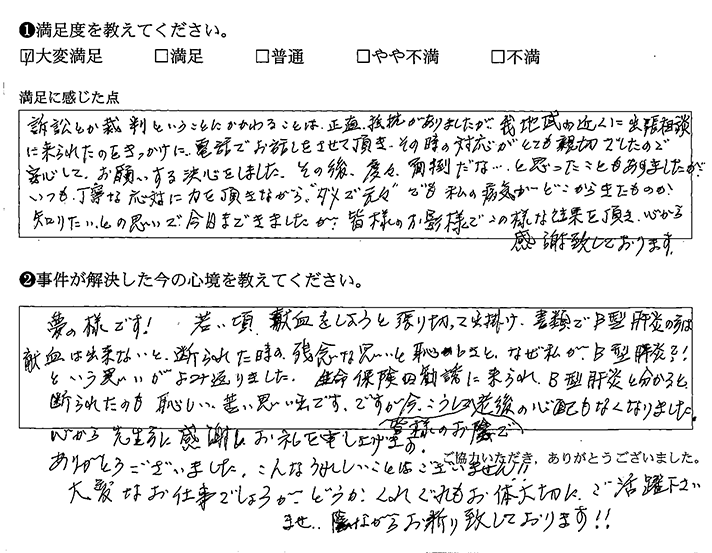 ❶満足度を教えてください。
☑大変満足 □満足 □普通 □やや不満 □不満
満足に感じた点
訴訟とか裁判ということにかかわることは、正直、抵抗がありましたが、我地域の近くに出張相談
に来られたのをきっかけに、電話でお話しをさせて頂き、その時の対応がとても親切でしたので
安心して、お願いする決心をしました。その後、度々、面倒だな…と思ったこともありましたが、
いつも、丁寧な応対に力を頂きながら、"ダメで元々"でも私の病気がどこからきたものか、
知りたい、との思いで、今日まできましたが、皆様のお影様でこの様な結果を頂き、心から
感謝致しております。
❷事件が解決した今の心境を教えてください。
夢の様です! 若い頃、献血をしようと張り切って出掛け、書類でB型肝炎の方は
献血は出来ないと、断られた時の残念な思いと恥かしさと、なぜ私が、B型肝炎?!
という思いがよみ返りました。生命保険の勧誘に来られ、B型肝炎と分かると、
断られたのも恥しい、苦い思い出です。ですが今、こうして老後の心配もなくなりました。
心から先生方に感謝し、お礼を申し上げます。皆様のお陰で
ご協力いただき、ありがとうございました。
ありがとうございました。こんなうれしいことはございません!!
大変なお仕事でしょうが、どうか、くれぐれもお体大切に、ご活躍下さい
ませ、陰ながらお祈り致しております!!